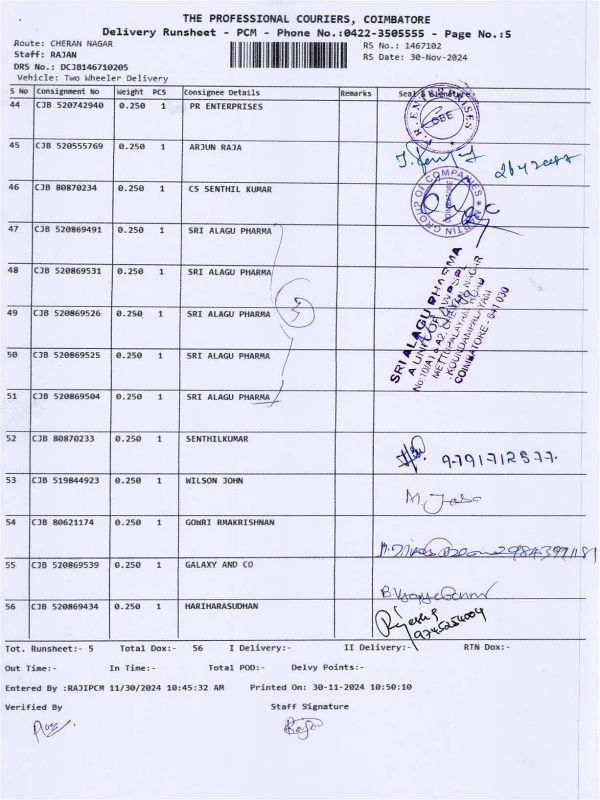 THE PROFESSIONAL COURIERS, COIMBATORE
Delivery Runsheet - PCM - Phone No.:0422-3505555 - Page No.:5
Route: CHERAN NAGAR RS No.: 1467102
Staff: RAJAN RS Date: 30-Nov-2024
DRS No.: DCJB146710205
Vehicle: Two Wheeler Delivery
S No Consignment No Weight PCS Consignee Details Remarks Seal & Signature
44 CJB 520742940 0.250 1 PR ENTERPRISES
P.R. ENTERPRISES
CBE
45 CJB 520555769 0.250 1 ARJUN RAJA
46 CJB 80870234 0.250 1 CS SENTHIL KUMAR
MARTIN GROUP OF COMPANIES
COIMBATORE
47 CJB 520869491 0.250 1 SRI ALAGU PHARMA
48 CJB 520869531 0.250 1 SRI ALAGU PHARMA
49 CJB 520869526 0.250 1 SRI ALAGU PHARMA
5
50 CJB 520869525 0.250 1 SRI ALAGU PHARMA
51 CJB 520869504 0.250 1 SRI ALAGU PHARMA
SRI ALAGU PHARMA
A UNIT OF VVPSPL
No:10/A1 & A2, CHERAN NAGAR
METTUPALAYAM ROAD
KOUNDAMPALAYAM
COIMBATORE - 641 030
52 CJB 80870233 0.250 1 SENTHILKUMAR 9791712577.
53 CJB 519844923 0.250 1 WILSON JOHN
54 CJB 80621174 0.250 1 GOWRI RMAKRISHNAN
55 CJB 520869539 0.250 1 GALAXY AND CO
56 CJB 520869434 0.250 1 HARIHARASUDHAN
Tot. Runsheet:- 5 Total Dox:- 56 I Delivery:- II Delivery:- RTN Dox:-
Out Time:- In Time:- Total POD:- Delvy Points:-
Entered By :RAJIPCM 11/30/2024 10:45:32 AM Printed On: 30-11-2024 10:50:10
Verified By Staff Signature